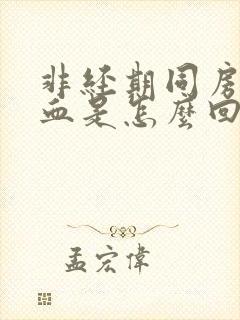 非經期同房
血是怎麼回
孟宏偉